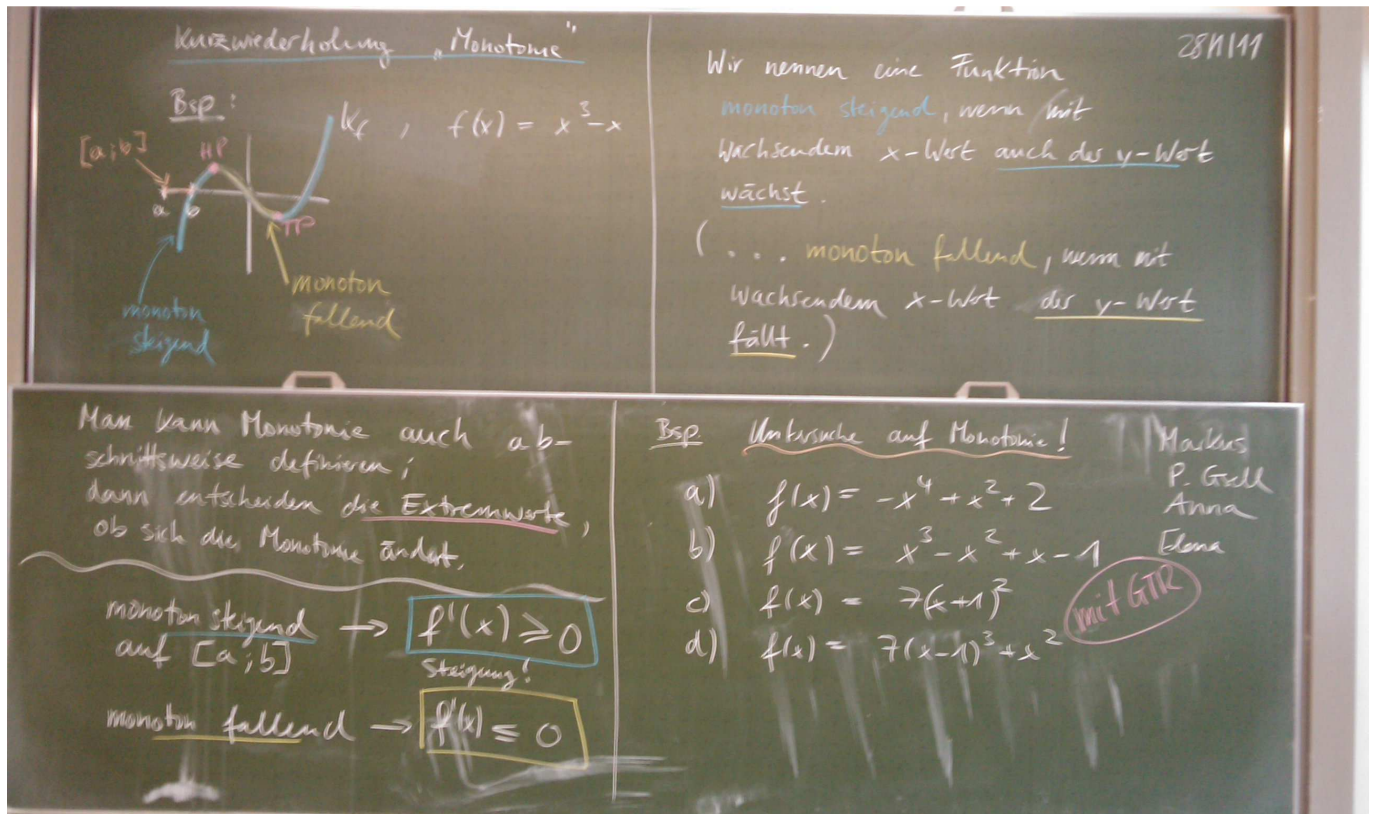 Kurzwiederholung „Monotonie“
Bsp:
Kf , f(x) = x³-x
[a;b]
HP
a b
TP
monoton
steigend
monoton
fallend
28/1/11
Wir nennen eine Funktion
monoton steigend, wenn mit
wachsendem x-Wert auch der y-Wert
wächst.
(... monoton fallend, wenn mit
wachsendem x-Wert der y-Wert
fällt.)
Man kann Monotonie auch ab-
schnittsweise definieren;
dann entscheiden die Extremwerte,
ob sich die Monotonie ändert.
monoton steigend → f'(x) ≥ 0
auf [a;b]
Steigung!
monoton fallend → f'(x) ≤ 0
Bsp. Untersuche auf Monotonie!
a) f(x) = -x⁴ + x² + 2
b) f(x) = x³ - x² + x - 1
c) f(x) = 7(x+1)²
d) f(x) = 7(x-1)³ + x²
mit GTR
Markus
P.
Anna
Elena